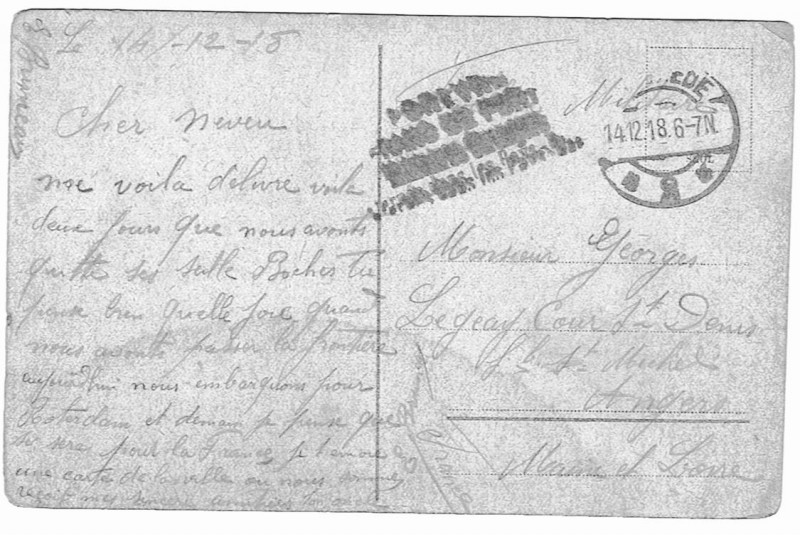 Le 14-12-18
Cher neveu
me voila delivre voila
deux jours que nous avonts
quitté ses salle Boches tu
pense bien quelle joie quand
nous avonts passer la frontiere
aujourdhui nous embarquons pour
Roterdam et demain je pense que
seras pour la France, je
une carte de la ville ou nous sommes
reçoit mes sincere amities
Militaire
EDE
14.12.18.6-7N
Monsieur Georges
Legeay Cour St Denis
St Michel
Angers
Maine et Loire